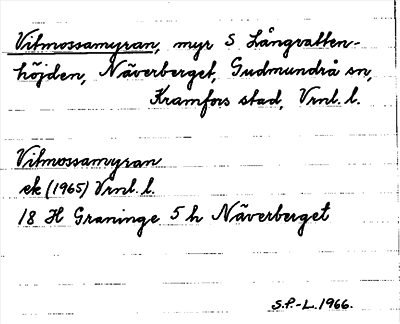 Vitmossamyran, myr S Långvatten-
höjden, Näverberget, Gudmundrå sn,
Kramfors stad, Vrnl. l.
Vitmossamyran
ek (1965) Vrnl. l.
18 H Graninge 5 h Näverberget
S.P.-L. 1966.